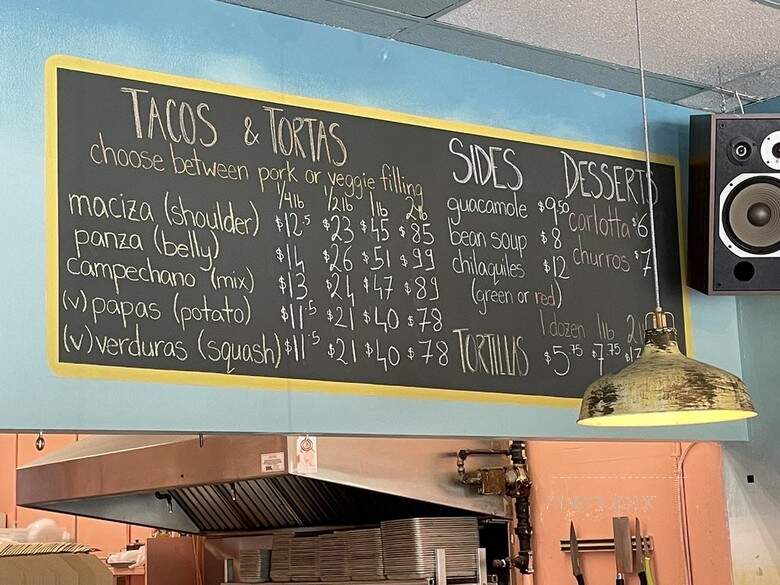 TACOS & TORTAS
choose between pork or veggie filling
1/4lb 1/2lb 1lb 2lb
maciza (shoulder) $12.5 $23 $45 $85
panza (belly) $14 $26 $51 $99
campechano (mix) $13 $24 $47 $89
(v) papas (potato) $11.5 $21 $40 $78
(v) verduras (squash) $11.5 $21 $40 $78
SIDES
guacamole $9.50
bean soup $8
chilaquiles $12
(green or red)
DESSERTS
carlotta $6
churros $7
1 dozen 1lb
TORTILLAS $5.75 $7.75